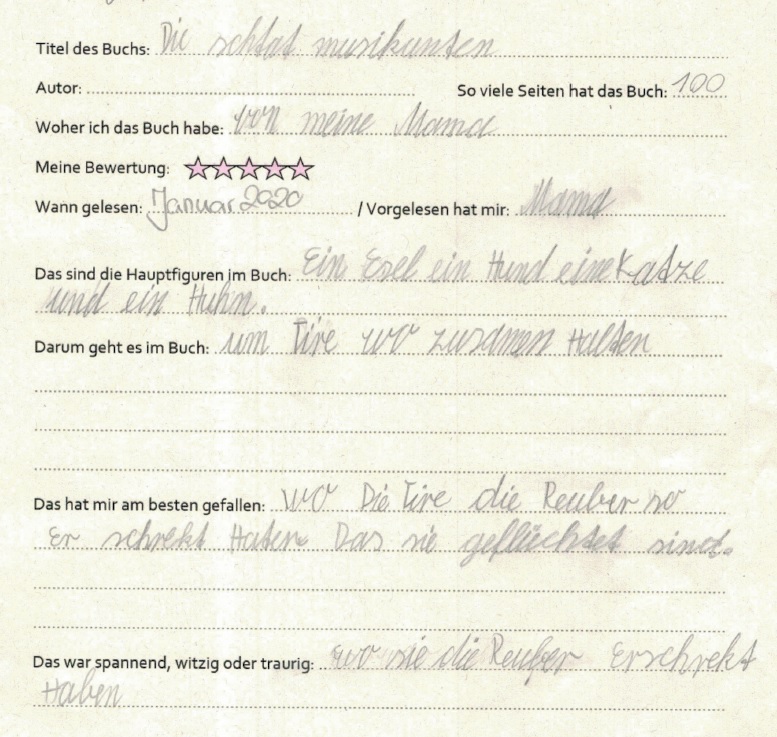 Titel des Buchs: Die schtat musikanten
Autor: So viele Seiten hat das Buch: 100
Woher ich das Buch habe: von meine Mama
Meine Bewertung:
Wann gelesen: Januar 2020 / Vorgelesen hat mir: Mama
Das sind die Hauptfiguren im Buch: Ein Esel ein Hund eine Katze
und ein Huhn.
Darum geht es im Buch: um Tire wo zusamen Halten
Das hat mir am besten gefallen: wo Die Tire die Reuber so
Er schrekt Haben Das sie geflüchtet sind.
Das war spannend, witzig oder traurig: wo sie die Reuber Erschrekt
Haben